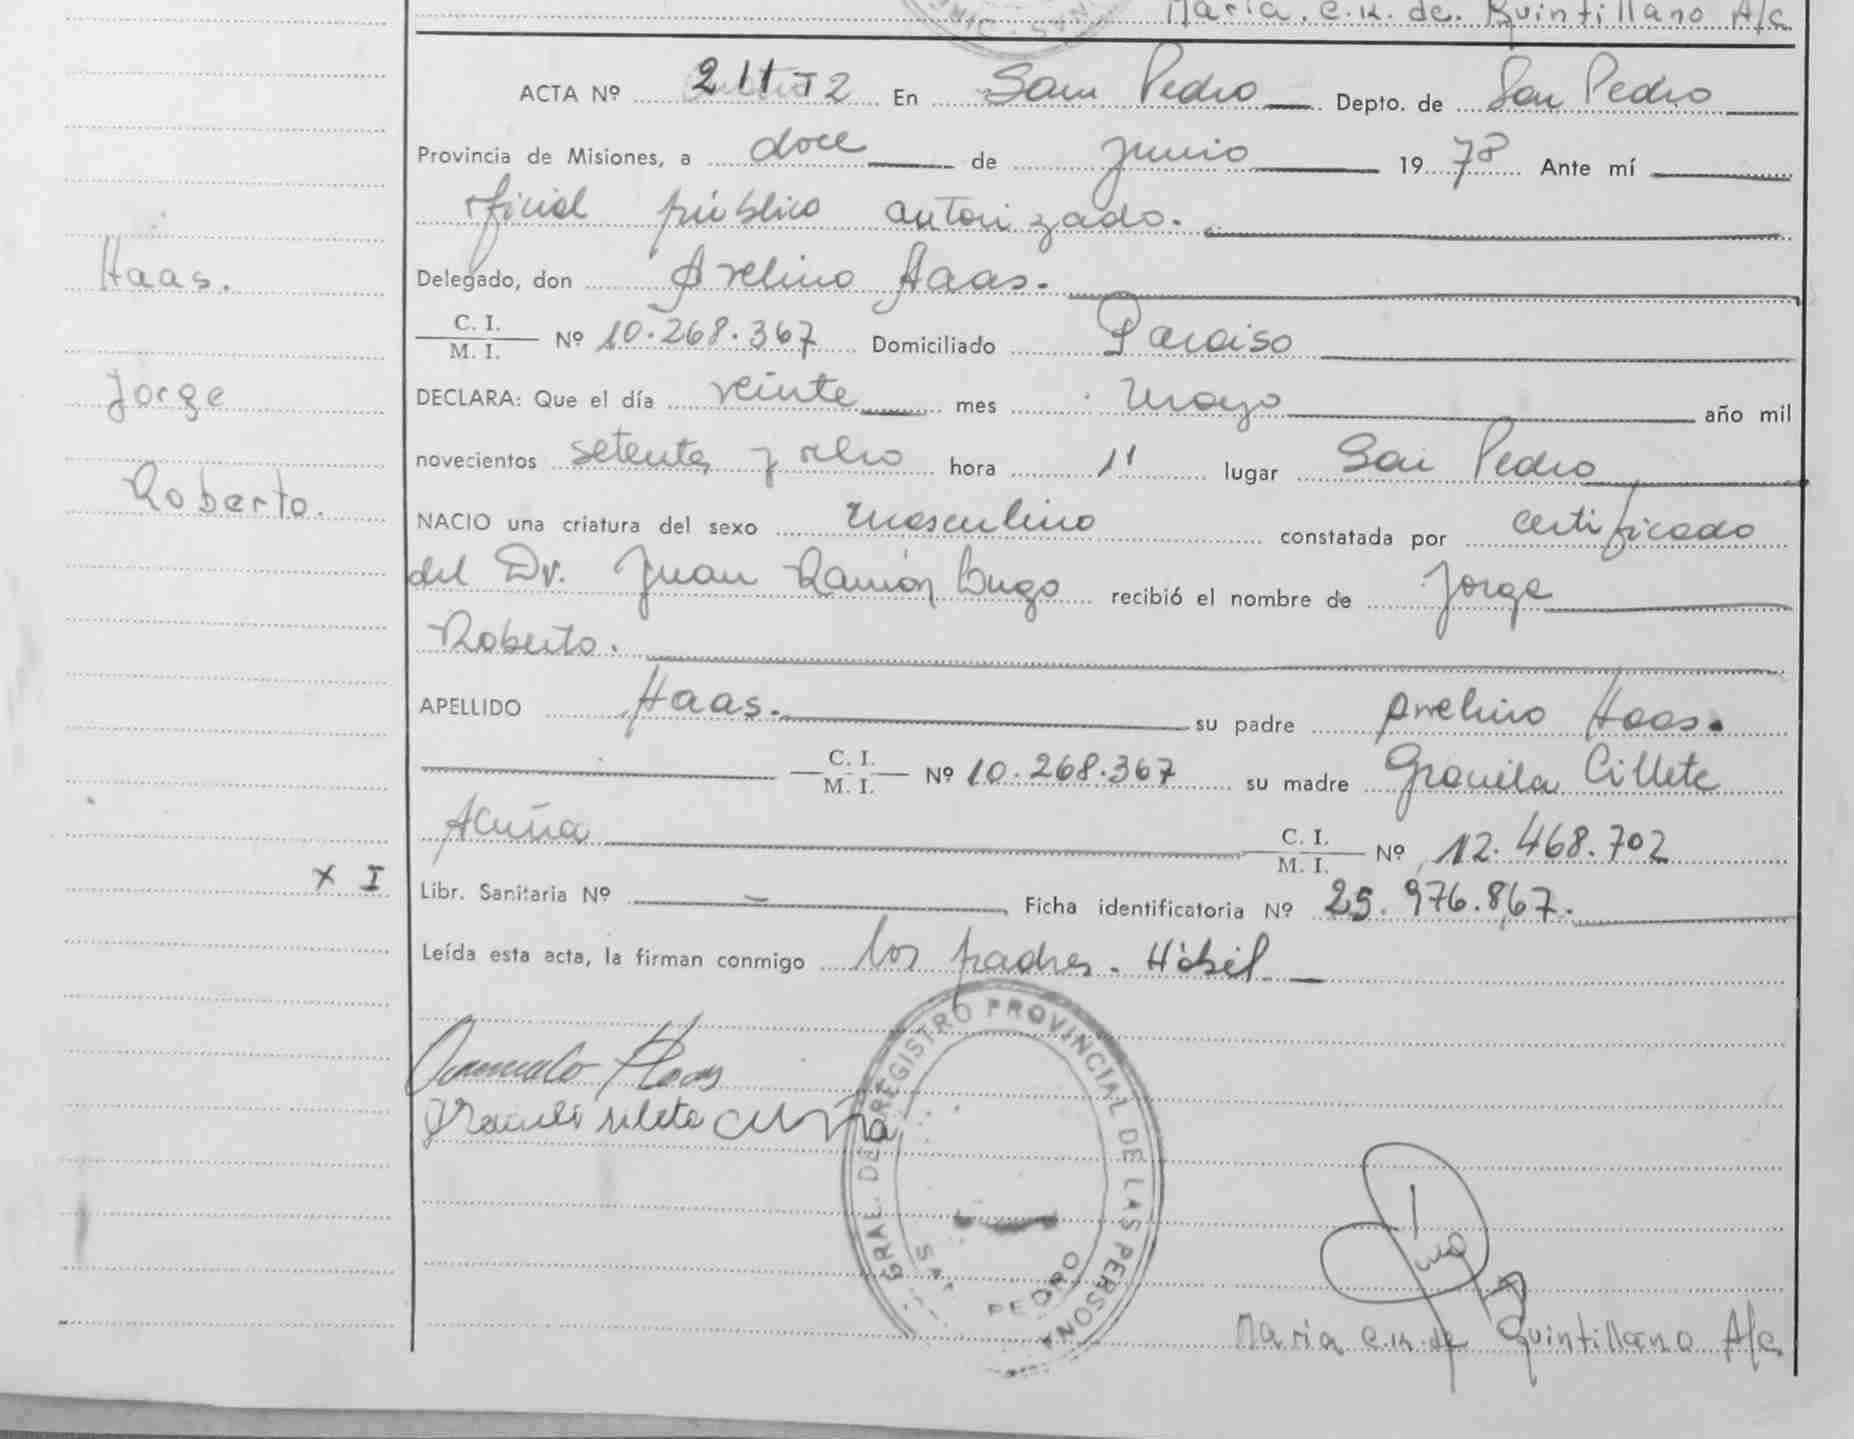 Maria. e.k. de. Quintillano A/c
ACTA Nº 211 T2 En San Pedro Depto. de San Pedro
Provincia de Misiones, a doce de junio 1978 Ante mí
oficial público autorizado.
Haas.
Delegado, don Avelino Haas.
C. I.
M. I. Nº 10.268.367 Domiciliado Paraiso
Jorge
DECLARA: Que el día veinte mes mayo año mil
novecientos setenta y ocho hora 11 lugar San Pedro
Roberto.
NACIO una criatura del sexo masculino constatada por certificado
del Dr. Juan Ramón Lugo recibió el nombre de Jorge
Roberto.
APELLIDO Haas. su padre Avelino Haas.
C. I.
M. I. Nº 10.268.367 su madre Graciela Cillete
Acuña C. I.
M. I. Nº 12.468.702
X I
Libr. Sanitaria Nº — Ficha identificatoria Nº 25.976.867.
Leída esta acta, la firman conmigo los padres. Hábil.
Haas
GRAL. DEL REGISTRO PROVINCIAL DE LAS PERSONA
SAN PEDRO
Maria e.k. de Quintillano A/c